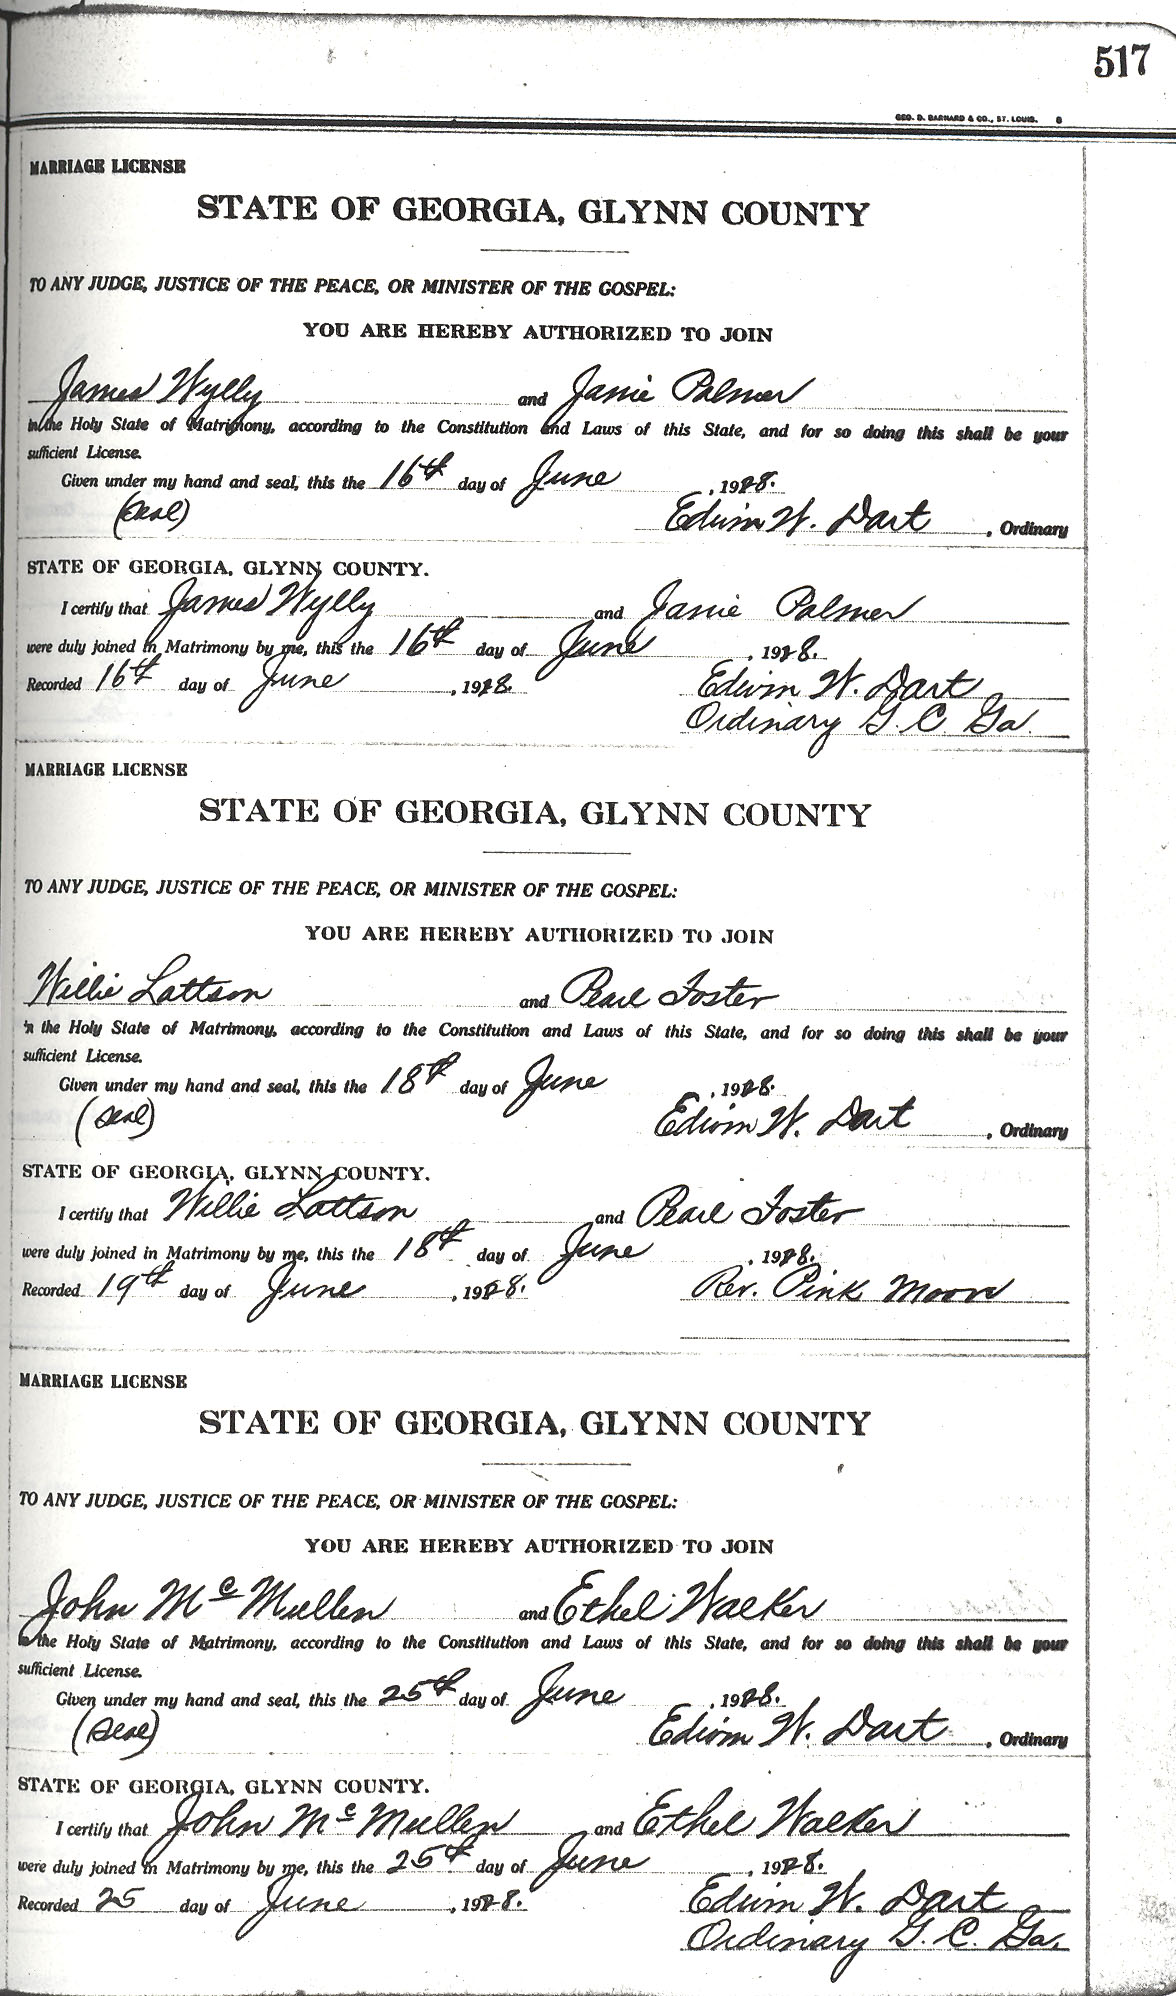 517
GEO. D. BARNARD & CO., ST. LOUIS. 8
MARRIAGE LICENSE
STATE OF GEORGIA, GLYNN COUNTY
TO ANY JUDGE, JUSTICE OF THE PEACE, OR MINISTER OF THE GOSPEL:
YOU ARE HEREBY AUTHORIZED TO JOIN
James Wylly and Janie Palmer
in the Holy State of Matrimony, according to the Constitution and Laws of this State, and for so doing this shall be your
sufficient License.
Given under my hand and seal, this the 16th day of June, 1928.
(seal) Edwin W. Dart, Ordinary
STATE OF GEORGIA, GLYNN COUNTY.
I certify that James Wylly and Janie Palmer
were duly joined in Matrimony by me, this the 16th day of June, 1928.
Recorded 16th day of June, 1928. Edwin W. Dart
Ordinary G. C. Ga.
MARRIAGE LICENSE
STATE OF GEORGIA, GLYNN COUNTY
TO ANY JUDGE, JUSTICE OF THE PEACE, OR MINISTER OF THE GOSPEL:
YOU ARE HEREBY AUTHORIZED TO JOIN
Willie Lattson and Pearl Foster
in the Holy State of Matrimony, according to the Constitution and Laws of this State, and for so doing this shall be your
sufficient License.
Given under my hand and seal, this the 18th day of June, 1928.
(seal) Edwin W. Dart, Ordinary
STATE OF GEORGIA, GLYNN COUNTY.
I certify that Willie Lattson and Pearl Foster
were duly joined in Matrimony by me, this the 18th day of June, 1928.
Recorded 19th day of June, 1928. Rev. Pink Moon
MARRIAGE LICENSE
STATE OF GEORGIA, GLYNN COUNTY
TO ANY JUDGE, JUSTICE OF THE PEACE, OR MINISTER OF THE GOSPEL:
YOU ARE HEREBY AUTHORIZED TO JOIN
John McMullen and Ethel Walker
in the Holy State of Matrimony, according to the Constitution and Laws of this State, and for so doing this shall be your
sufficient License.
Given under my hand and seal, this the 25th day of June, 1928.
(seal) Edwin W. Dart, Ordinary
STATE OF GEORGIA, GLYNN COUNTY.
I certify that John McMullen and Ethel Walker
were duly joined in Matrimony by me, this the 25th day of June, 1928.
Recorded 25 day of June, 1928. Edwin W. Dart
Ordinary G. C. Ga.